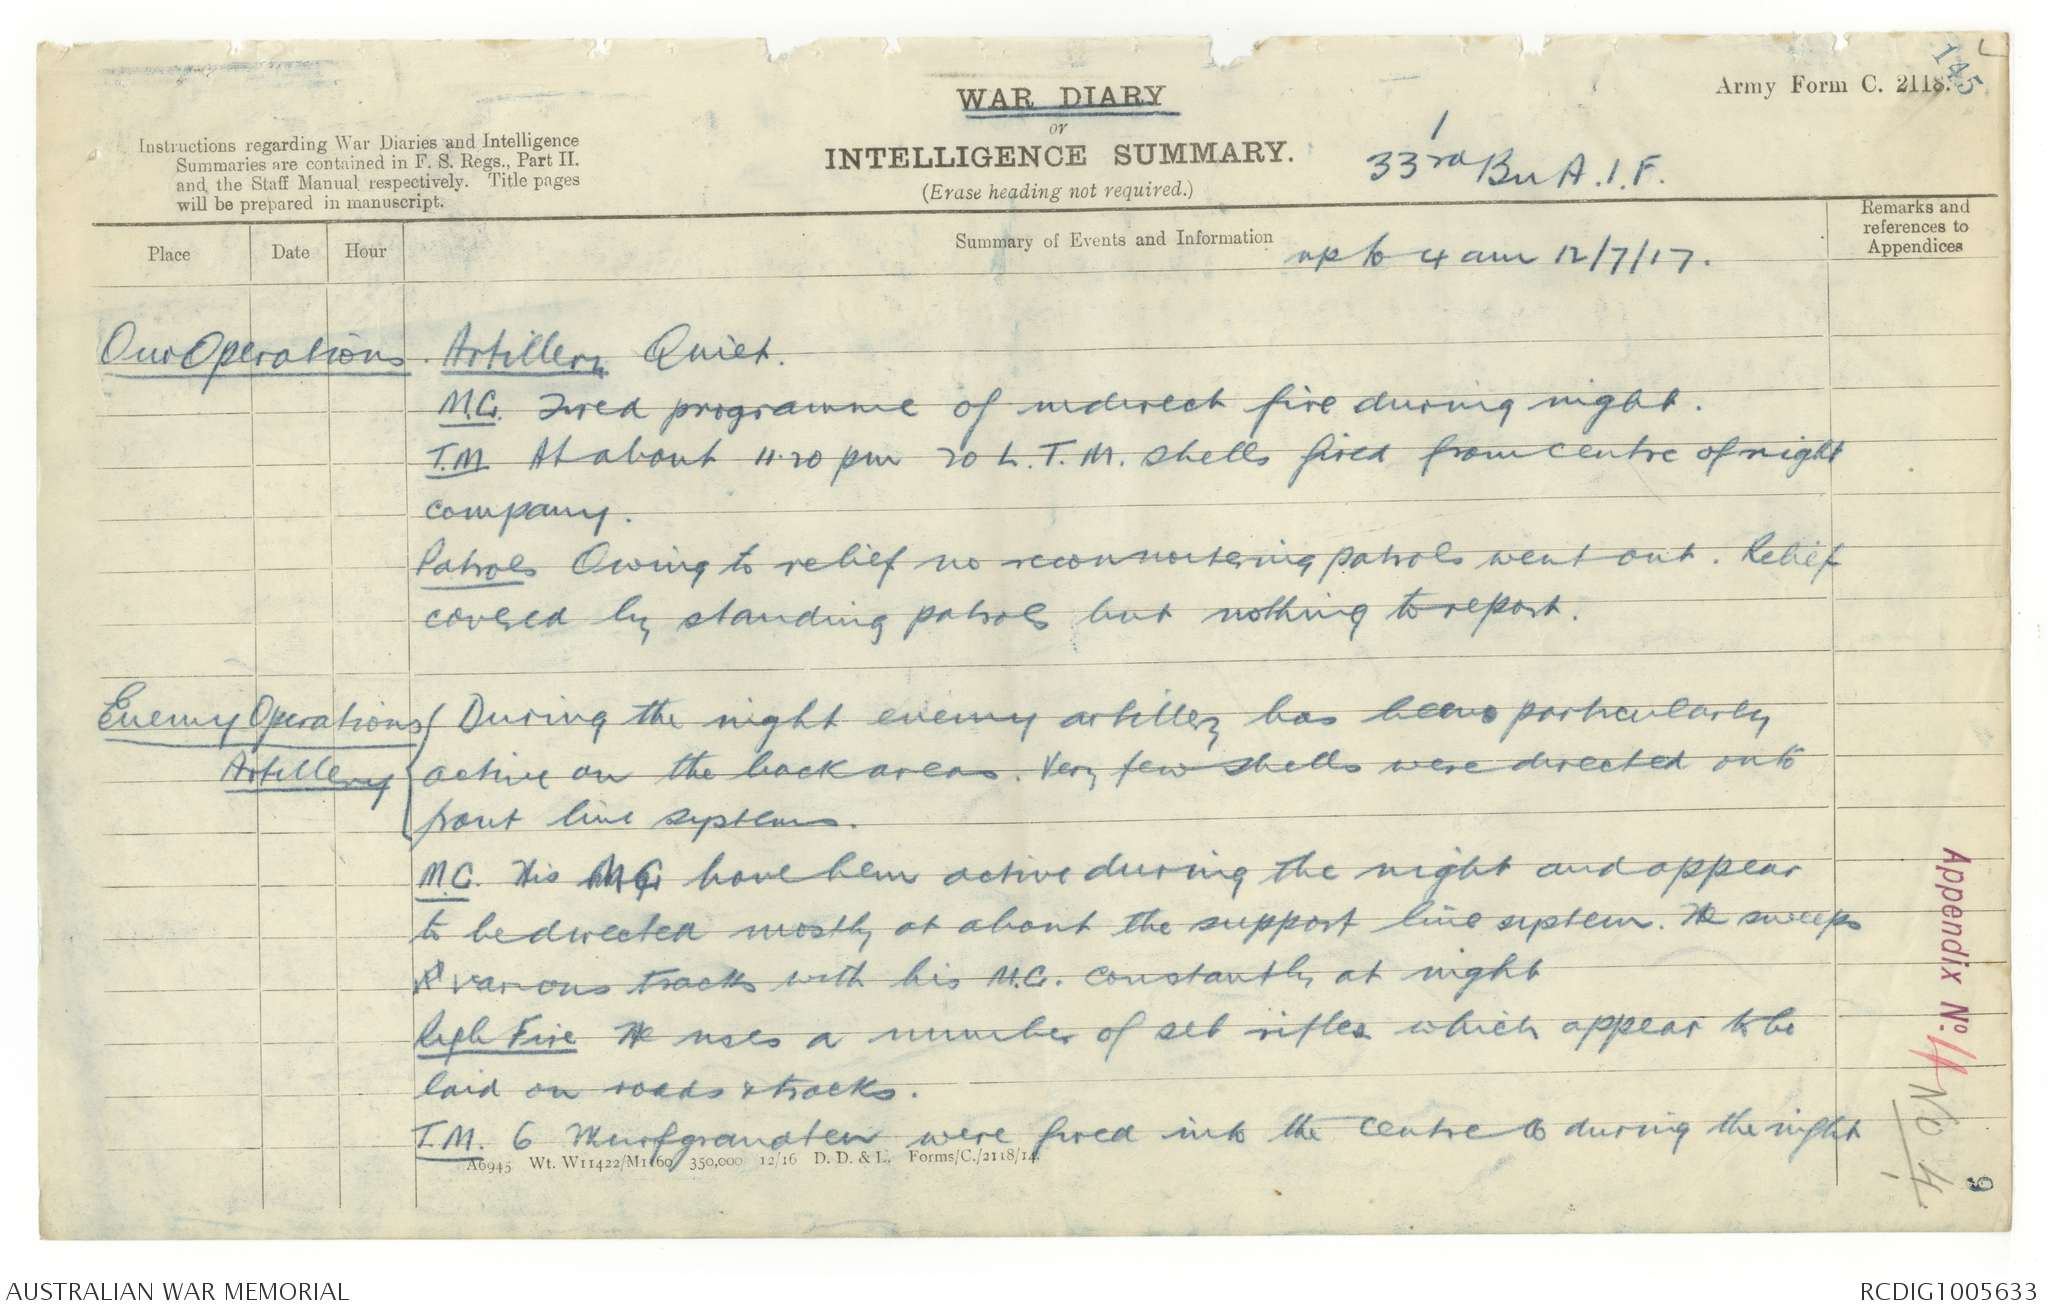 145
Army Form C. 2118.
WAR DIARY
or
INTELLIGENCE SUMMARY.
(Erase heading not required.)
Instructions regarding War Diaries and Intelligence
Summaries are contained in F. S. Regs., Part II.
and the Staff Manual respectively. Title pages
will be prepared in manuscript.
1
33rd Bn A.I.F.
Place
Date
Hour
Summary of Events and Information
Remarks and
references to
Appendices
up to 4 am 12/7/17.
Our Operations. Artillery Quiet.
M.G. Fired programme of indirect fire during night.
T.M. At about 11.20 pm 20 L.T.M. shells fired from centre of right
company.
Patrols Owing to relief no reconnoitering patrols went out. Relief
covered by standing patrols but nothing to report.
Enemy Operations During the night enemy artillery has been particularly
Artillery active on the back areas. Very few shells were directed onto
front line systems.
M.G. His MG have been active during the night and appear
to be directed mostly at about the support line system. He sweeps
various tracks with his M.G. constantly at night
Rifle Fire He uses a number of set rifles which appear to be
laid on roads & tracks.
T.M. 6 were fired into the centre during the night
A6945 Wt. W11422/M1160 350,000 12/16 D. D. & L. Forms/C./2118/14.
Appendix No.
No 4
9
AUSTRALIAN WAR MEMORIAL
RCDIG1005633